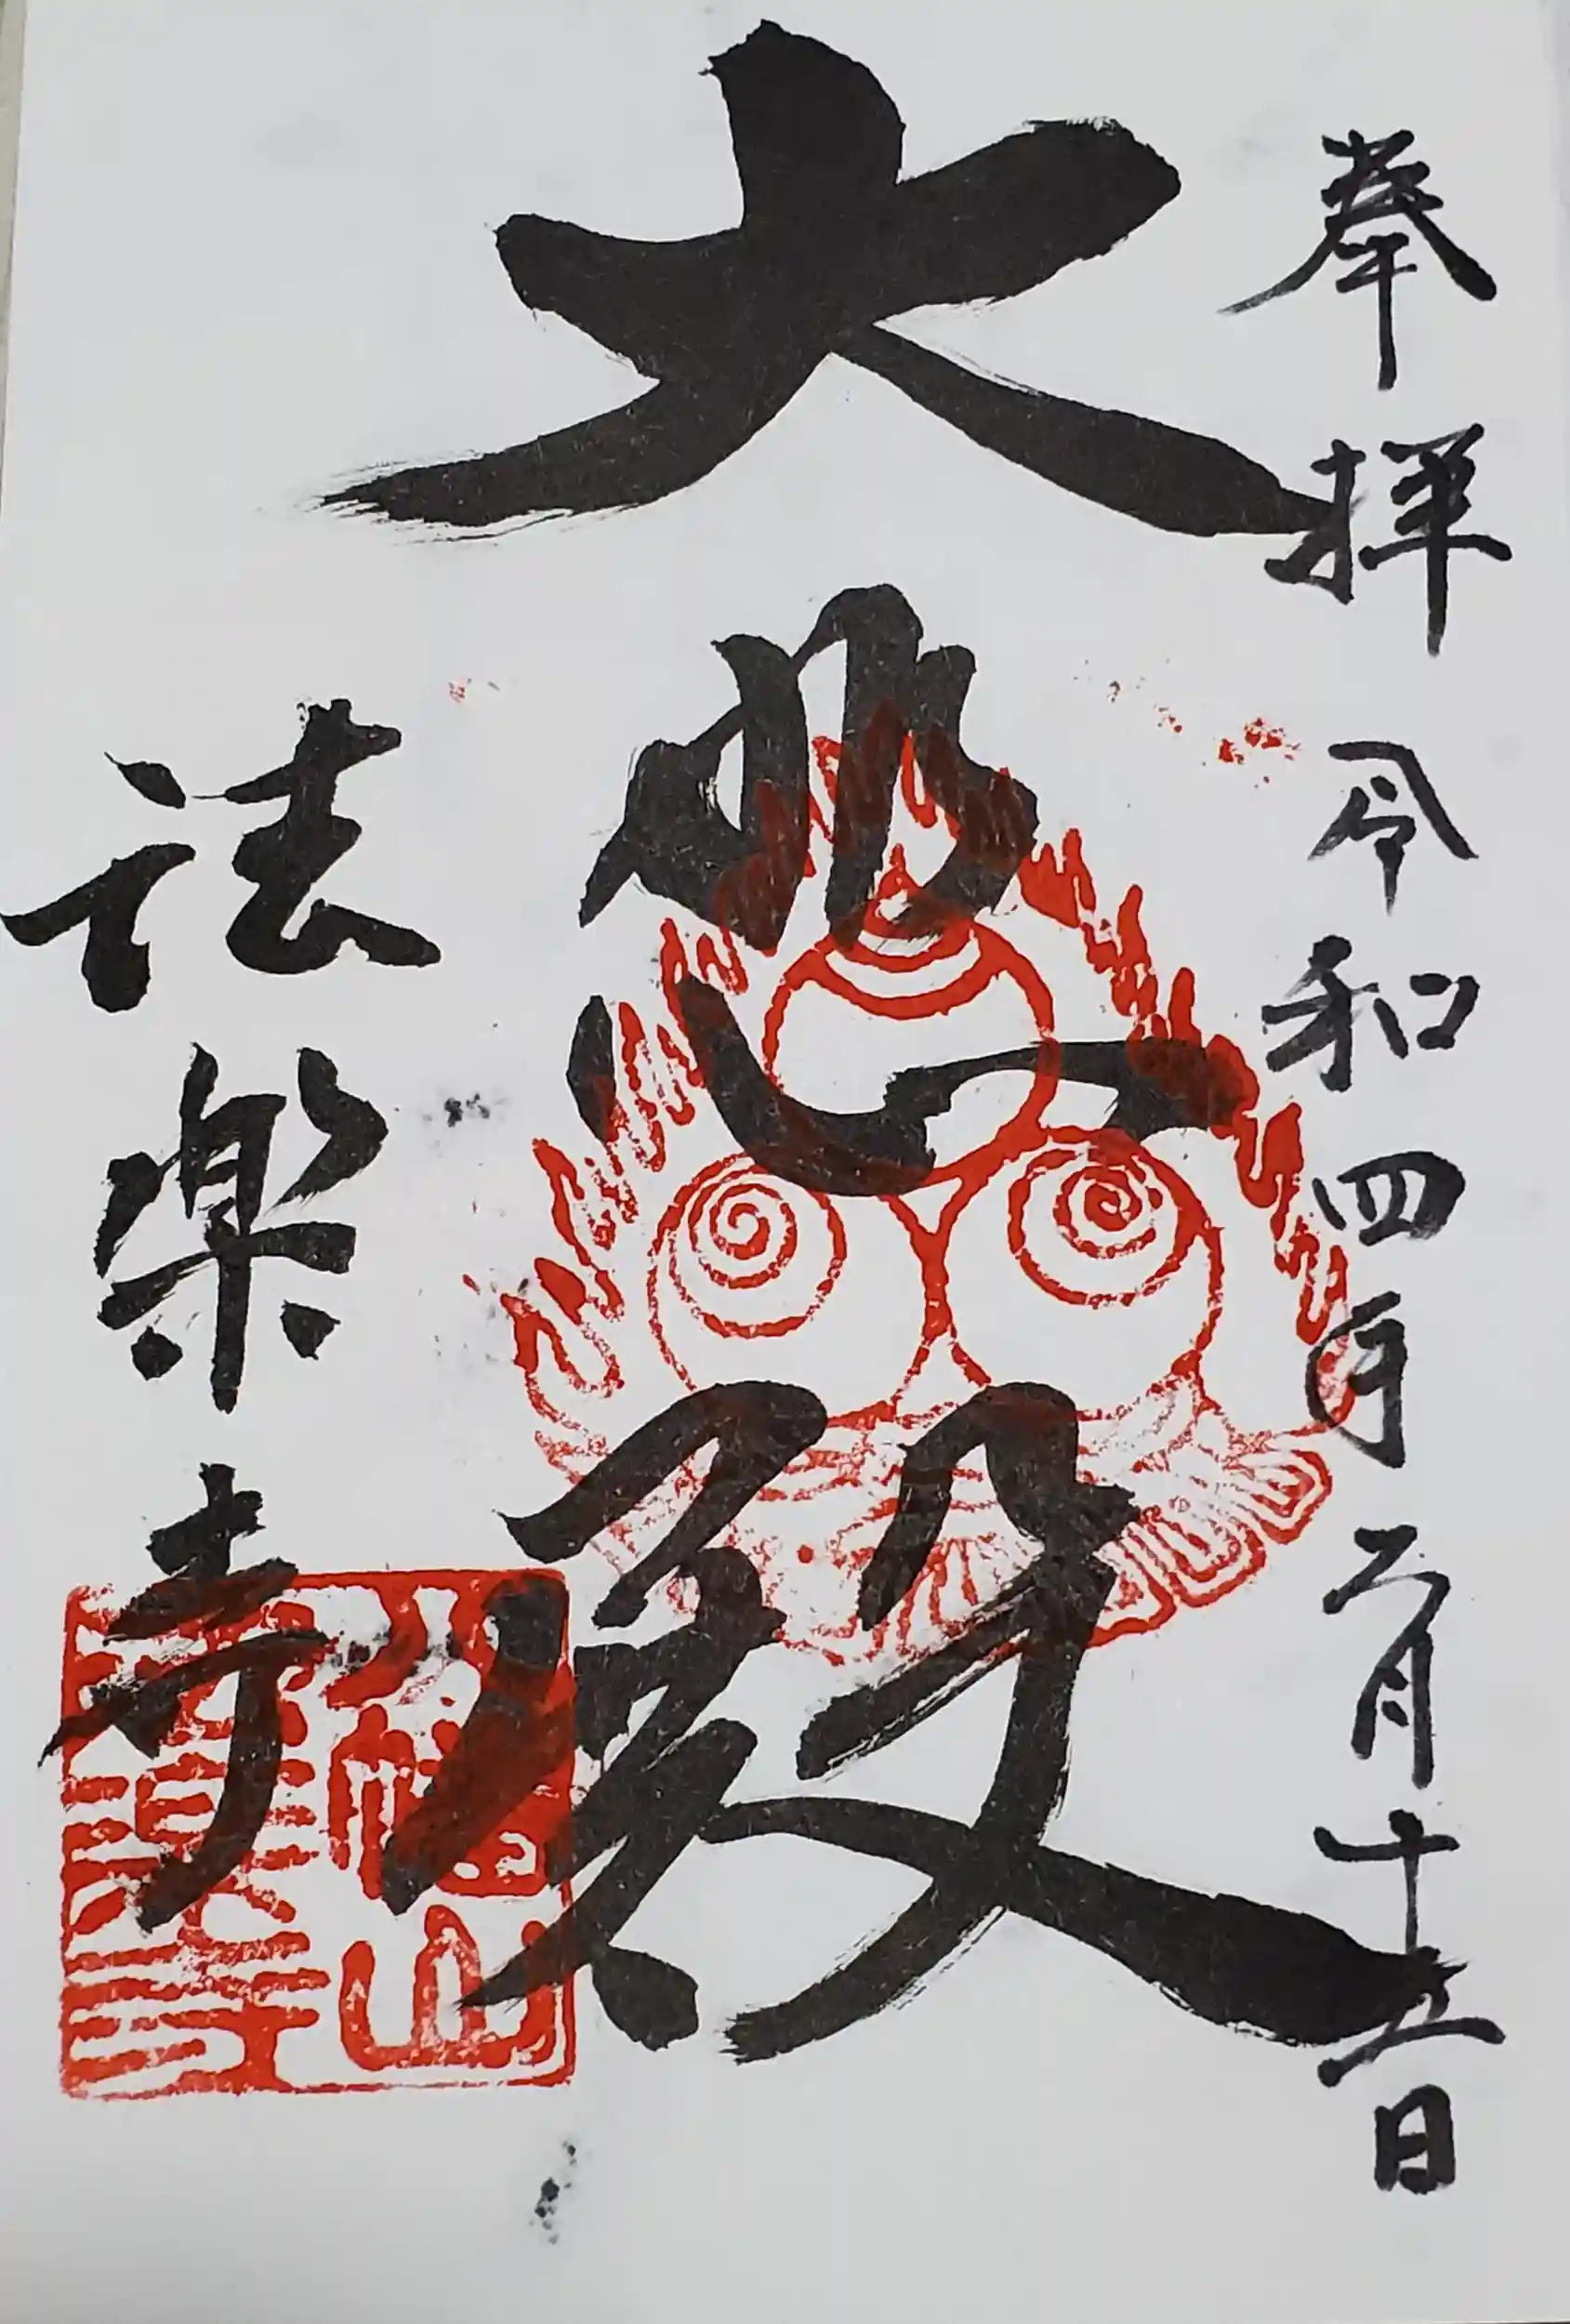 奉拝 令和四年二月十五日
大悲殿
法楽寺